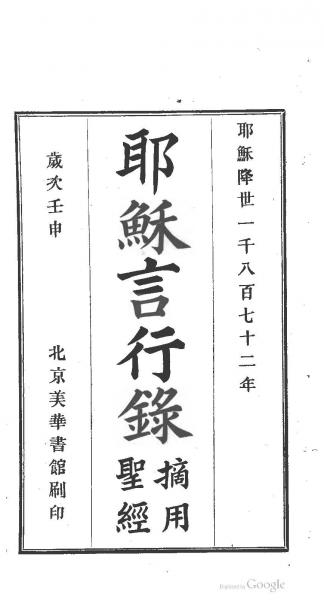 耶穌降世一千八百七十二年
耶穌言行錄
摘用
聖經
歲次壬申
北京美華書館刷印
Digitized by Google